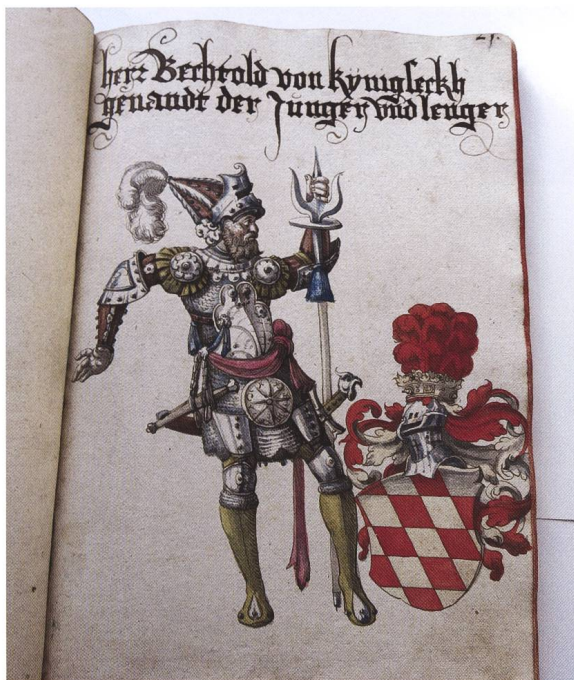 21.
herr Bechtold von kynigseckh
genandt der Junger vnd lenger